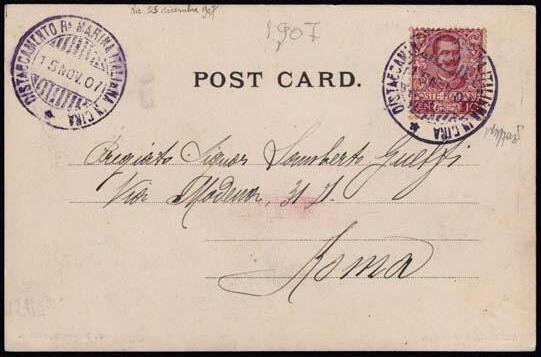 Ric. 25 dicembre 907
1907
DISTACCAMENTO Rª MARINA ITALIANA IN CINA
15 NOV. 07
POST CARD.
POSTE
CENT. 10
DISTACCAMENTO ITALIANA IN CINA
Pregiato Signor Lamberto
Via Modena, 31
Roma